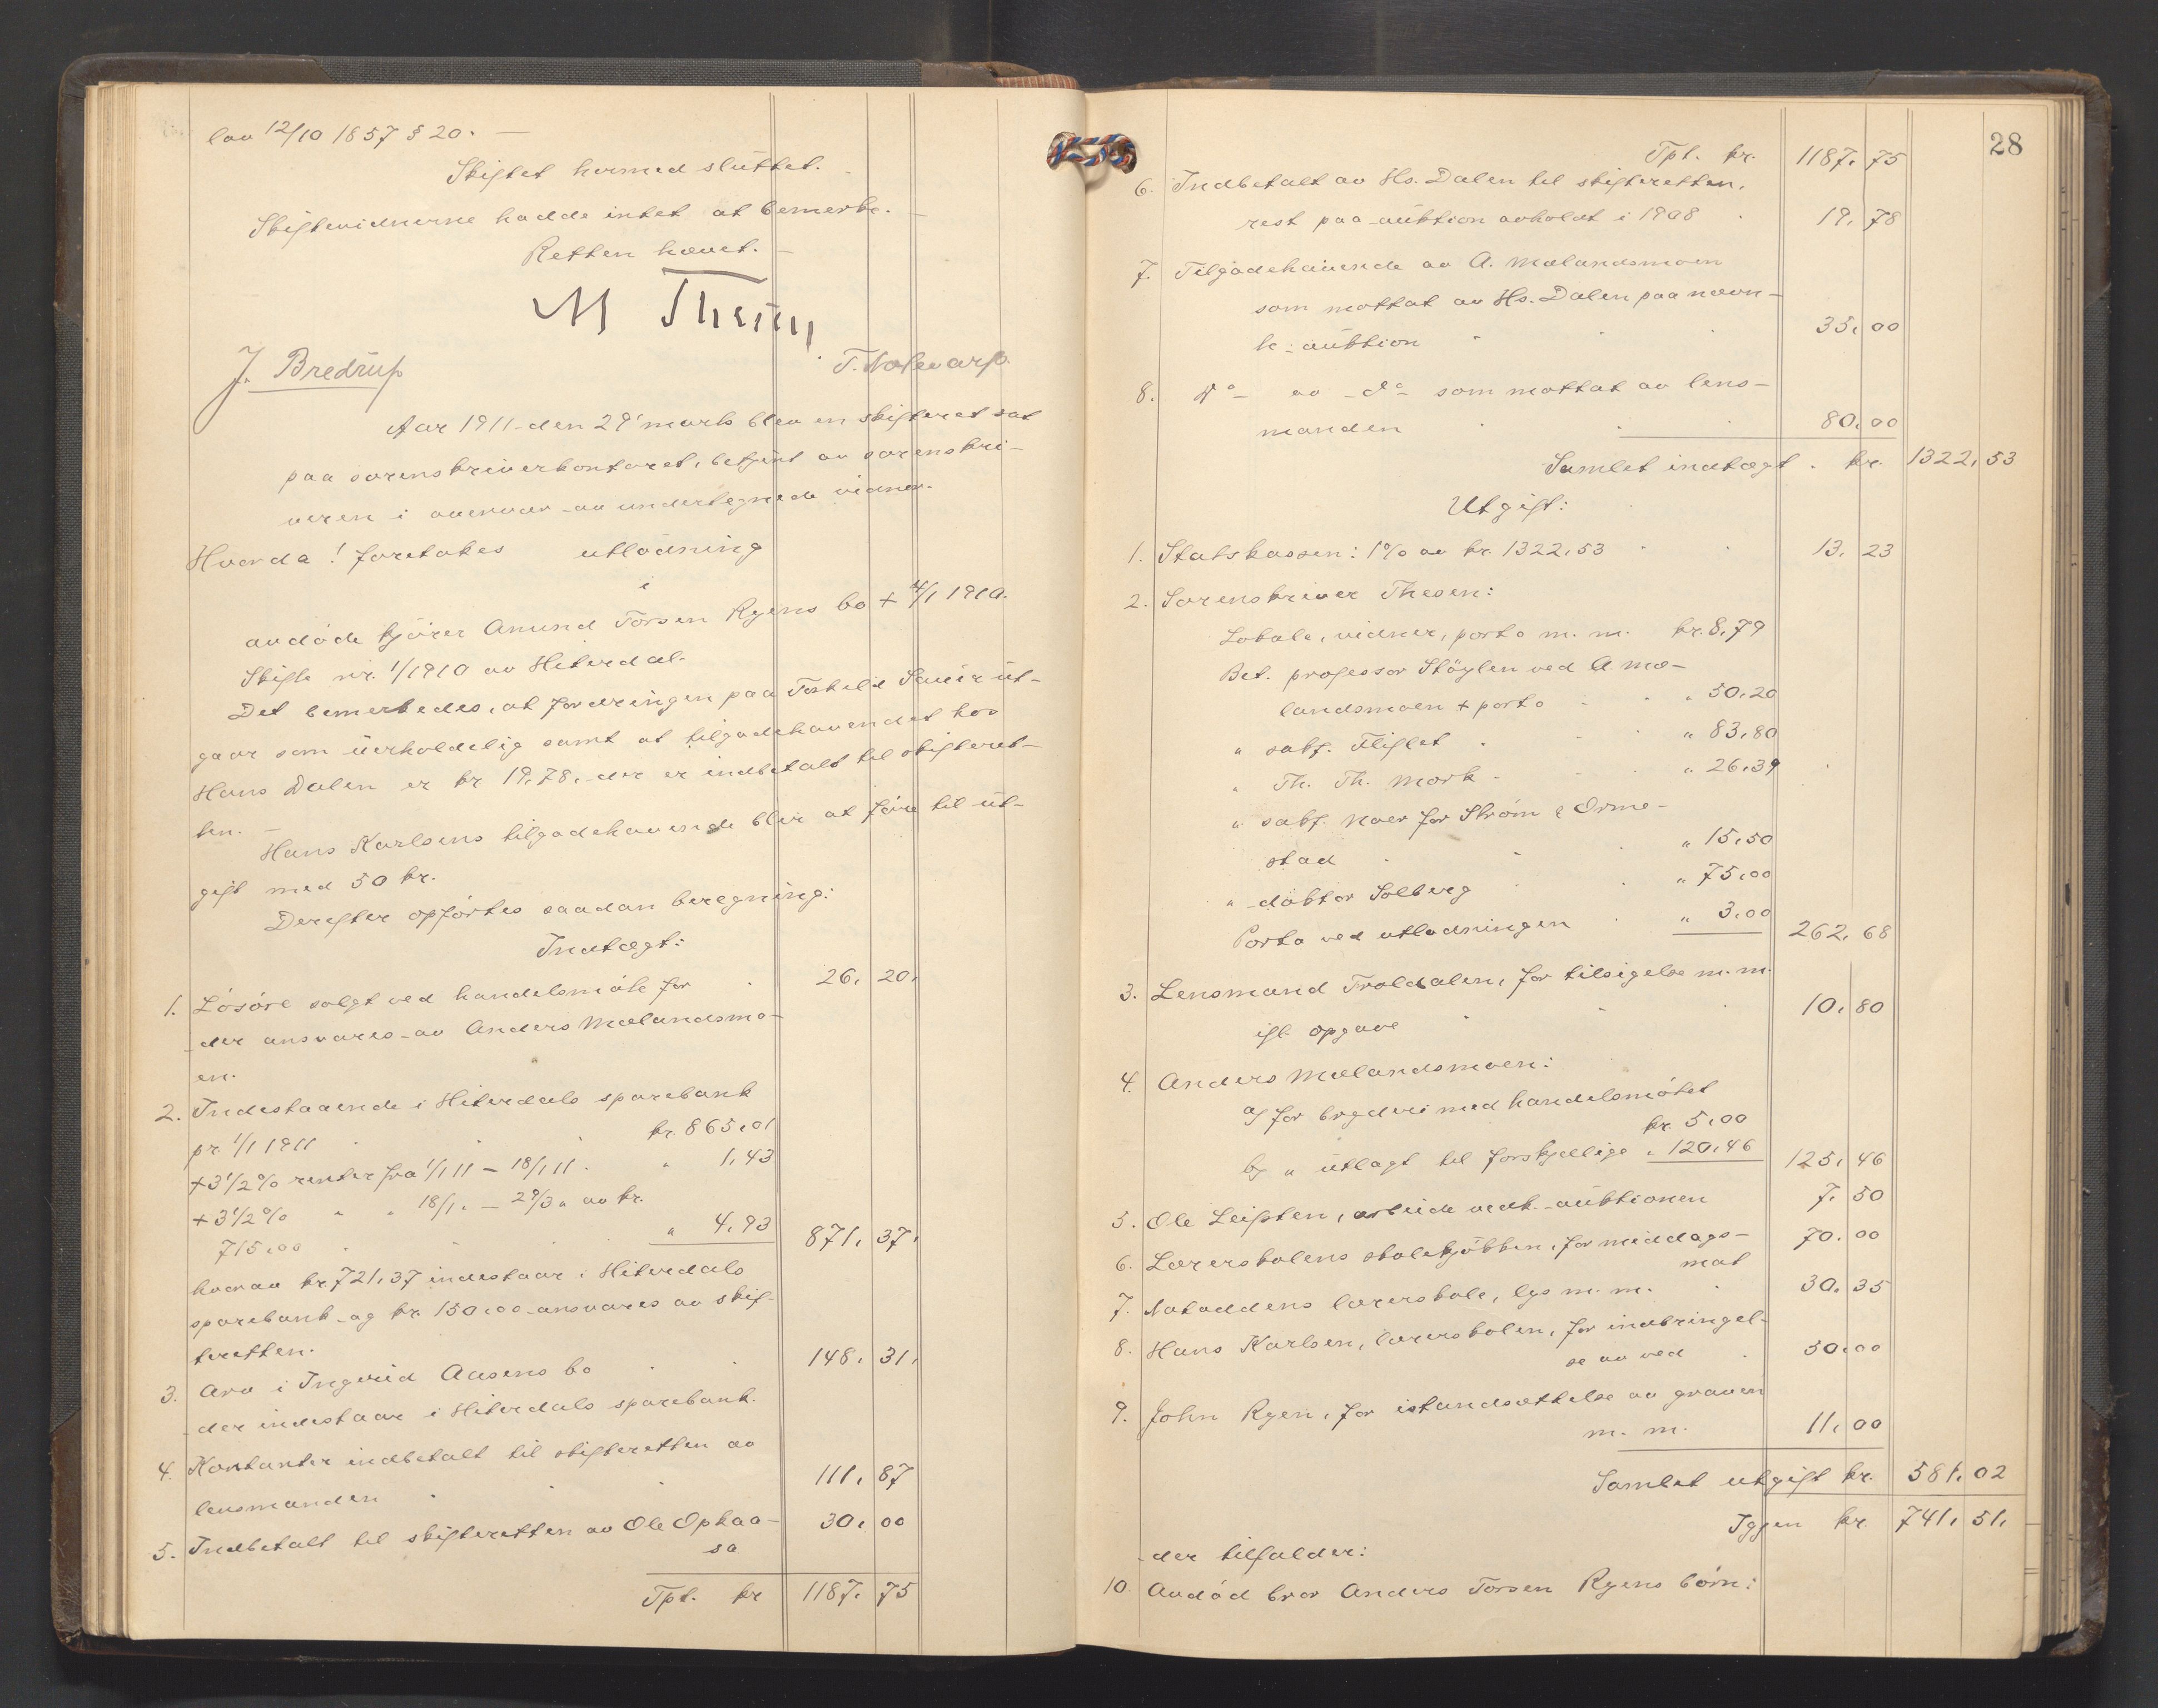 lov 12/10 1857 § 20. —
Skiftet hermed sluttet.
Skiftevidnerne hadde intet at bemerke. —
Retten hævet. —
M Thesen
J. Bredrup
T. Notevarp.
Aar 1911 den 29' marts blev en skifteret sat
paa sorenskriverkontoret, betjent av sorenskri-
veren i overvær av undertegnede vidner.
Hvorda! foretokes utlodning
i
avdöde kjörer Amund Torsen Ryens bo + 4/1 1910.
Skifte nr. 1/1910 av Hiterdal.
Det bemerkedes, at fordringen paa Torkeld Sauer ut-
gaar som uerholdelig samt at tilgodehavendet hos
Hans Dalen er kr 19.78, der er indbetalt til skifteret-
ten. —
Hans Karlsens tilgodehavende blir at före til ut-
gift med 50 kr.
Derefter opförtes saadan beregning:
Indtægt:
1. Lösöre solgt ved handelsmöte for . 26. 20.
der ansvares av Anders Mælandsmo-
en.
2. Indestaaende i Hiterdals sparebank
pr. 1/1 1911 . . . kr. 865.01
+ 3 1/2 % renter fra 1/1 11 – 18/1 11 . " 1.43
+ 3 1/2 % " " 18/1 " – 29/3 " av kr.
715.00 . . . " 4.93 871. 37.
hvorav kr 721.37 indestaar i Hiterdals
sparebank og kr. 150.00 ansvares av skif-
teretten.
3. Arv i Ingerid Aasens bo . . 148. 31.
der indestaar i Hiterdals sparebank.
4. Kontanter indbetalt til skifteretten av
lensmanden . . . 111. 87
5. Indbetalt til skifteretten av Ole Opkaa-
sa 30. 00
Tpt. kr 1187. 75
28
Tpt. kr. 1187. 75
6. Indbetalt av Hs. Dalen til skifteretten,
rest paa auktion avholdt i 1908 . 19. 78
7. Tilgodehavende av A. Mælandsmoen
som mottat av Hs. Dalen paa nævn-
te auktion . . . 35. 00
8. do av do som mottat av lens-
manden . . . 80. 00
Samlet indtægt . kr. 1322. 53
Utgift:
1. Statskassen: 1% av kr. 1322.53 . . 13. 23
2. Sorenskriver Thesen:
Lokale, vidner, porto m. m. kr. 8.79
Bet. professor Stöylen ved A Mæ-
landsmoen + porto . . " 50.20
" sakf. Fliflet . . . " 83.80
" Th. Th. Mork . . . " 26.39
" sakf. Naer for Ström & Orme-
stad . . . " 15.50
" doktor Solberg . . " 75.00
Porto ved utlodningen . " 3.00 262. 68
3. Lensmand Troldalen, for tilsigelse m. m.
ifl. opgave . . . 10. 80
4. Anders Mælandsmoen:
a) for bryderi med handelsmötet
kr. 5.00
b) " utlagt til forskjellige " 120.46 125. 46
5. Ole Leiften, arbeide vedk. auktionen 7. 50
6. Lærerskolens skolekjökken, for middags-
mat 70. 00
7. Notoddens lærerskole, lys m. m. . 30. 35
8. Hans Karlsen, lærerskolen, for indbringel-
se av ved . 50.00
9. John Ryen, for istandsættelse av graven
m. m. 11. 00
Samlet utgift kr. 581. 02
Igjen kr. 741. 51.
der tilfalder:
10. Avdöd bror Anders Torsen Ryens börn: